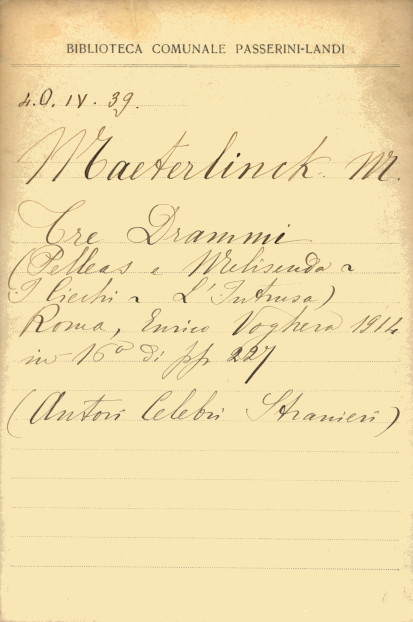 BIBLIOTECA COMUNALE PASSERINI-LANDI
4.O.IV.39.
Maeterlinck M.
Tre Drammi
(Pelleas e Melisenda -
I Ciechi - L'Intrusa)
Roma, Enrico Voghera 1914
in 16° di pp 227
(Autori Celebri Stranieri)